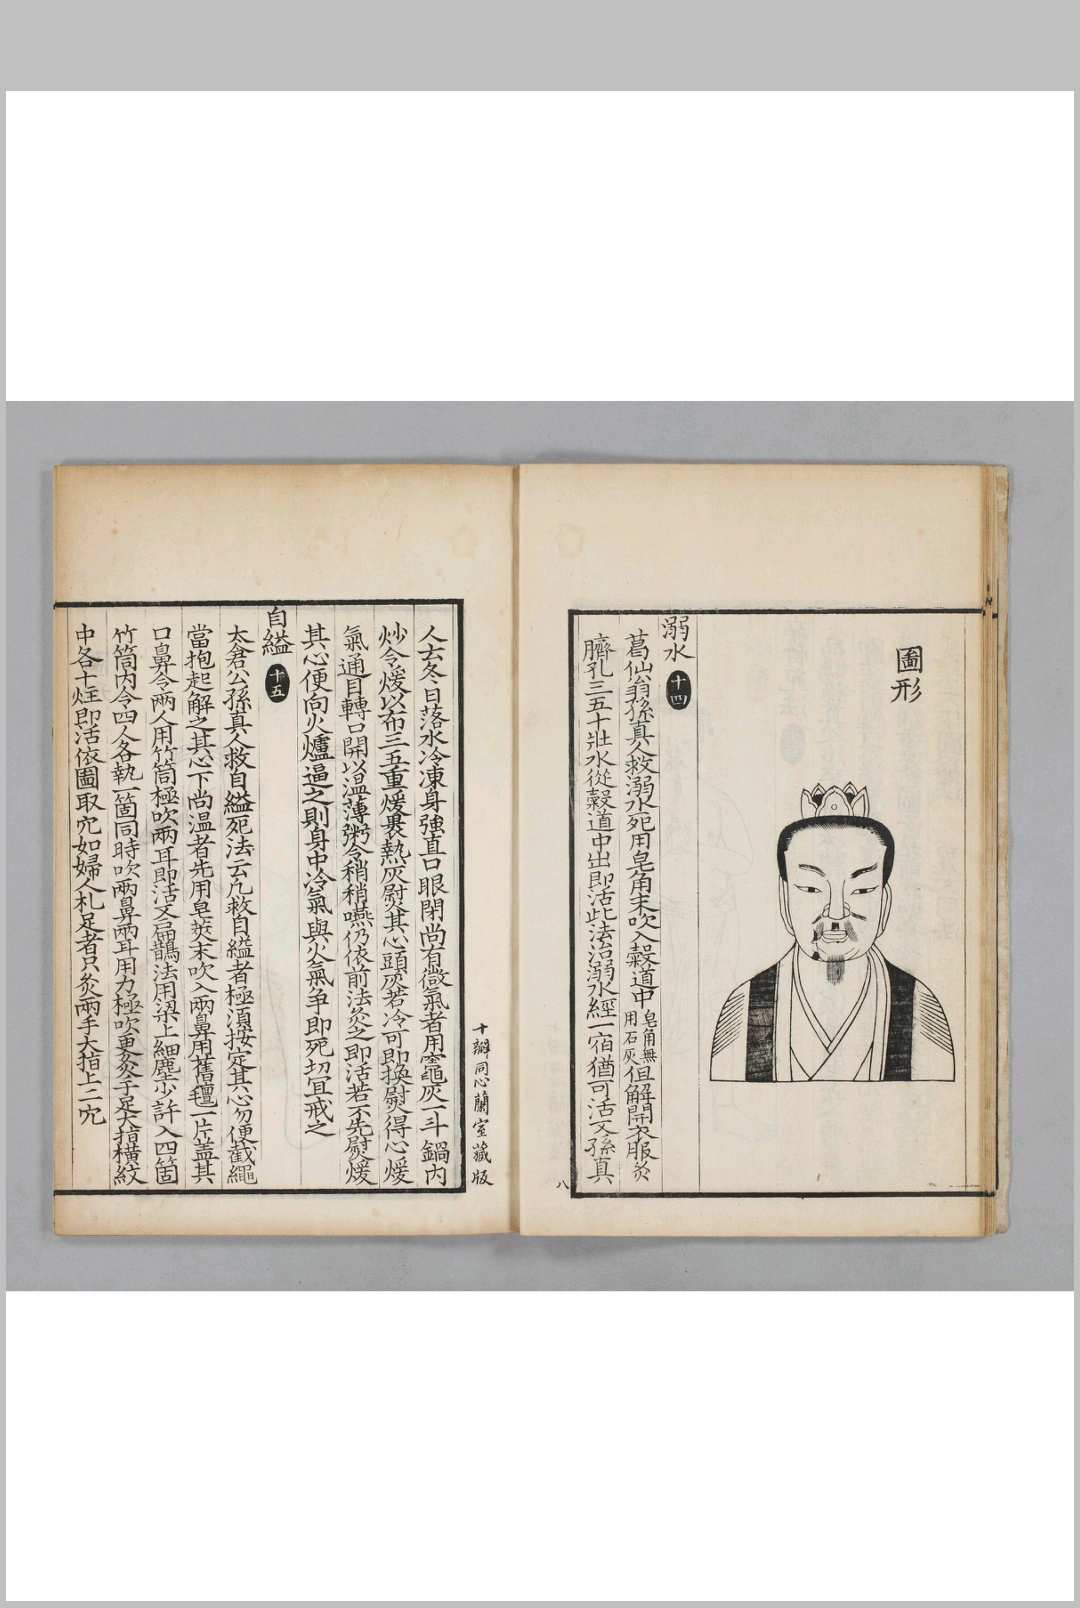 圖形
溺水 十四
葛仙翁孫真人救溺水死用皂角末吹入穀道中皂角無用石灰但解開衣服灸
臍孔三五十壯水從穀道中出即活此法治溺水經一宿猶可活又孫真
八
十瓣同心蘭室藏版
人云冬日落水冷凍身強直口眼閉尚有微氣者用竈灰一斗鍋內
炒令煖以布三五重煖裹熱灰熨其心頭灰若冷可即換熨得心煖
氣通目轉口開以溫薄粥令稍稍嚥仍依前法灸之即活若不先熨煖
其心便向火爐逼之則身中冷氣與火氣爭即死切宜戒之
自縊 十五
太倉公孫真人救自縊死法云凡救自縊者極須按定其心勿便截繩
當抱起解之其心下尚溫者先用皂莢末吹入兩鼻用舊氊一片盖其
口鼻令兩人用竹筒極吹兩耳即活又扁鵲法用梁上細塵少許入四箇
竹筒內令四人各執一箇同時吹兩鼻兩耳用力極吹更灸手足大指橫紋
中各十炷即活依圖取穴如婦人札足者只灸兩手大指上二穴